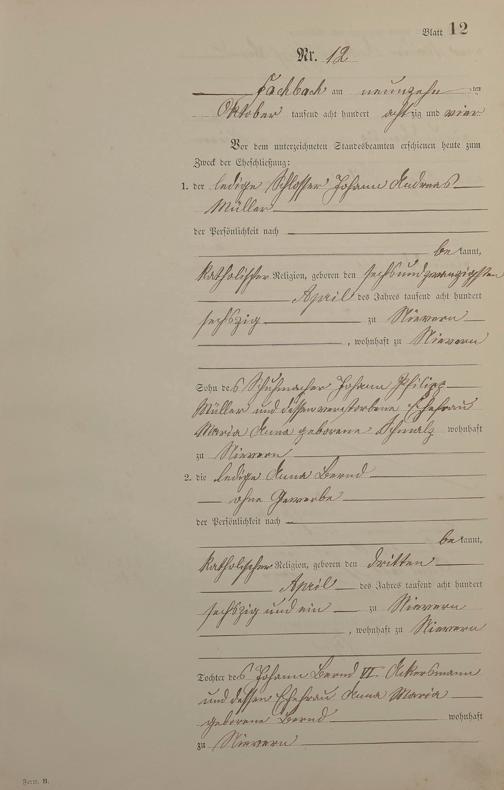 Blatt 12
Nr. 12
Fachbach am neunzehn ten
Oktober tausend acht hundert achtzig und vier
Vor dem unterzeichneten Standesbeamten erschienen heute zum
Zweck der Eheschließung:
1. der ledige Schlosser Johann Andreas
Müller
der Persönlichkeit nach
bekannt,
katholischer Religion, geboren den sechsundzwanzigsten
April des Jahres tausend acht hundert
sechszig zu Nievern
, wohnhaft zu Nievern
Sohn des Schuhmacher Johann Philipp
Müller und dessen verstorbene Ehefrau
Maria Anna geborene Schmalz wohnhaft
zu Nievern
2. die ledige Anna Bernd
ohne Gewerbe
der Persönlichkeit nach
bekannt,
katholischer Religion, geboren den dritten
April des Jahres tausend acht hundert
sechszig und ein zu Nievern
, wohnhaft zu Nievern
Tochter des Johann Bernd VI. Ackersmann
und dessen Ehefrau Anna Maria
geborene Bernd wohnhaft
zu Nievern
Form. B.